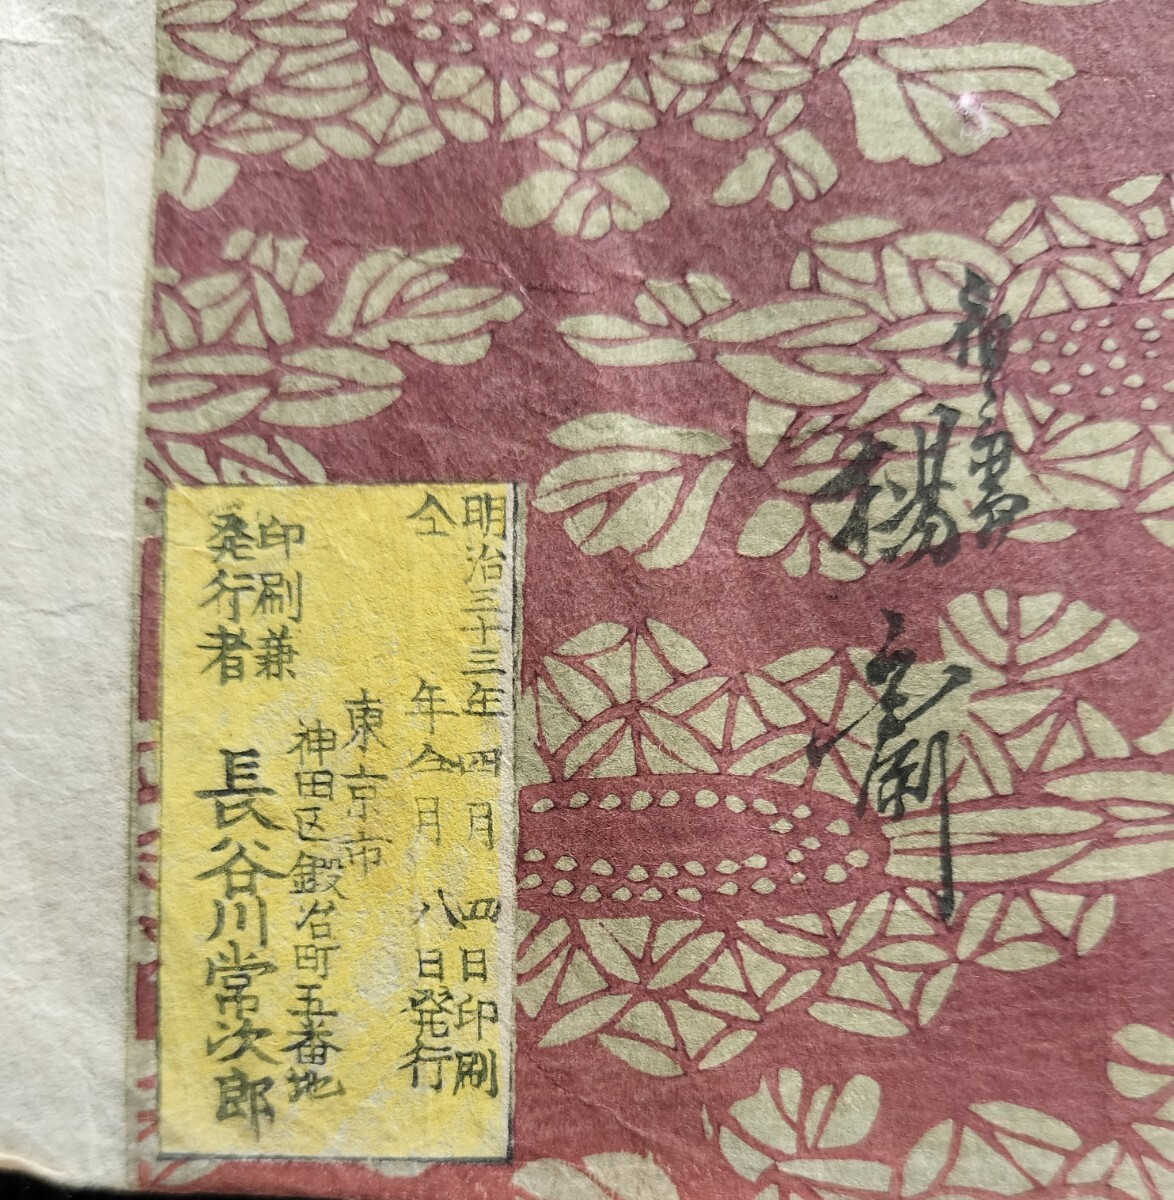 楊斎
延一
明治三十三年四月四日印刷
仝年仝月八日発行
東京市
神田区鍛冶町五番地
印刷兼
発行者
長谷川常次郎